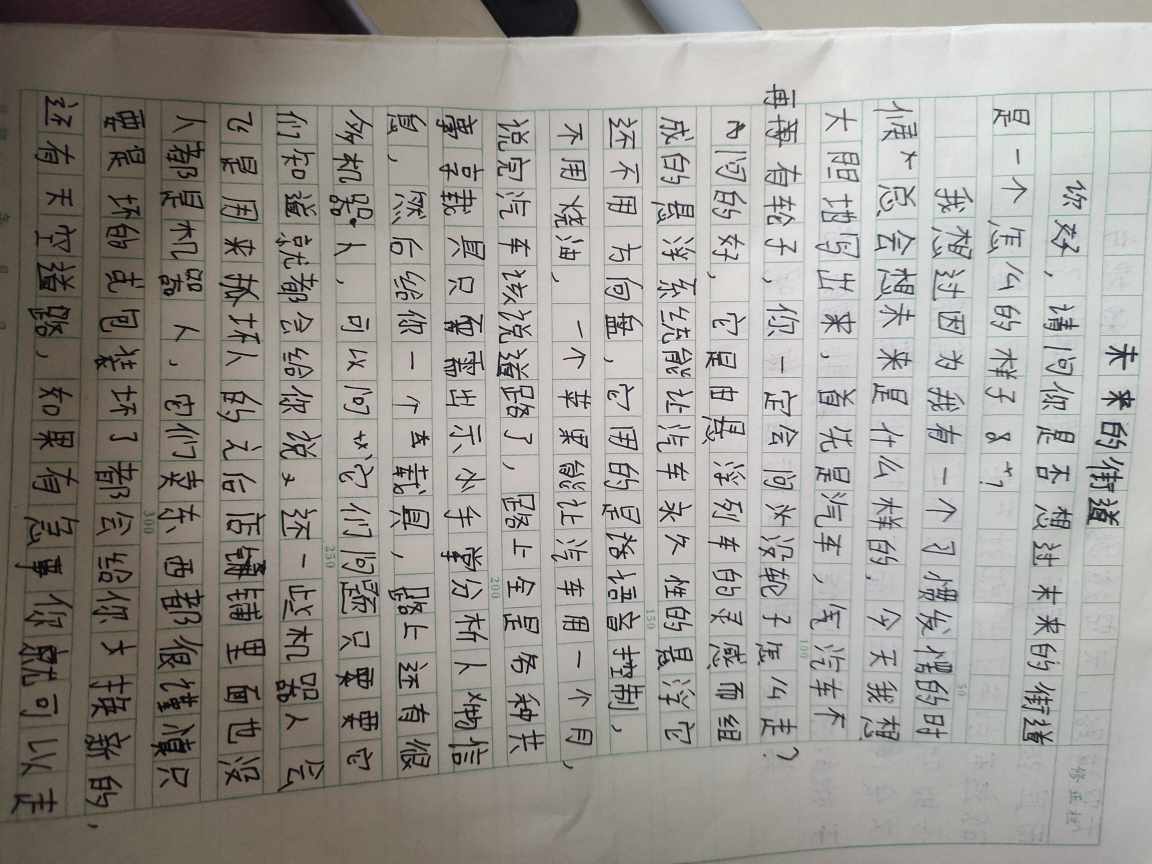 未来的街道
你好，请问你是否想过未来的街道
是一个怎么的样子
我想过因为我有一个习惯发愣的时
候总会想未来是什么样的，今天我想
大胆地写出来，首先是汽车，汽车不
再有轮子，你一定会问没轮子怎么走？
问的好，它是由悬浮列车的灵感而组
成的悬浮系统能让汽车永久性的悬浮它
还不用方向盘，它用的是语音控制，
不用烧油，一个苹果能让汽车用一个月，
说完汽车该说道路了，路上全是各种共
享载具只要需出示小手掌分析人物信
息，然后给你一个载具，路上还有很
多机器人，可以问它们问题只要它
们知道就都会给你说，还一些机器人会
人的之后店铺里面也没
人都是机器人，它们卖东西都很谨慎只
要是坏的或包装坏了都会给你换新的，
还有天空道路，如果有急事你就可以走
50
100
150
200
250
300
修正栏